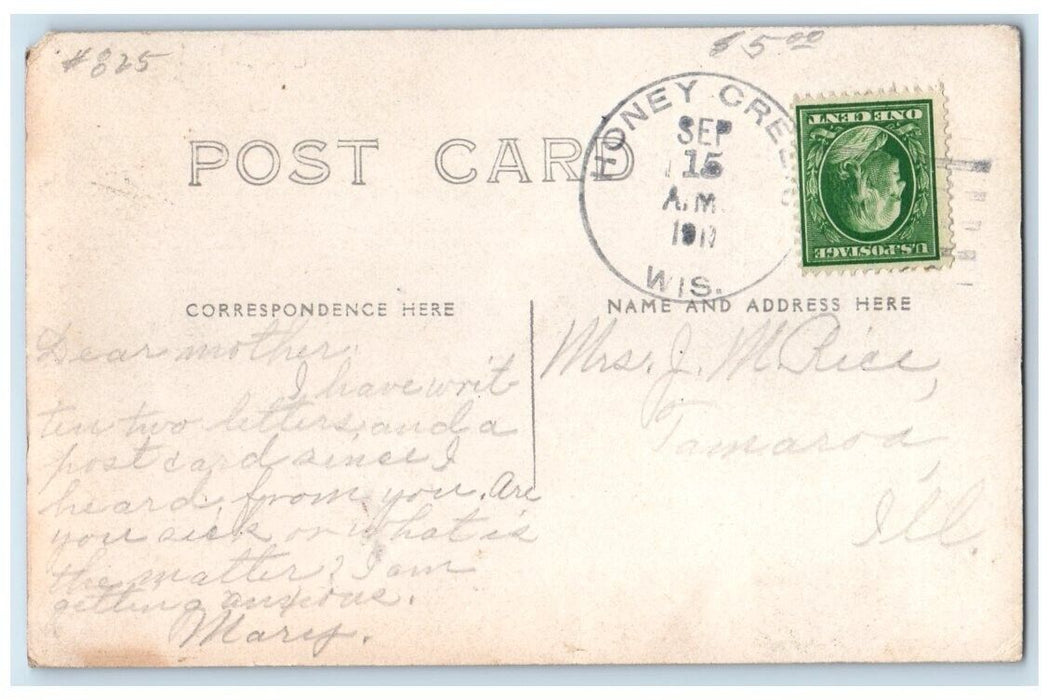 #825
$5.00
POST CARD
HONEY CREEK
SEP
15
A.M.
WIS.
ONE CENT
U.S.POSTAGE
CORRESPONDENCE HERE
Dear mother.
I have writ
ten two letters and a
post card since I
heard from you. Are
you sick or what is
the matter? I am
getting anxious.
Mary.
NAME AND ADDRESS HERE
Mrs. J. M. Rice,
Tamaroa,
Ill.